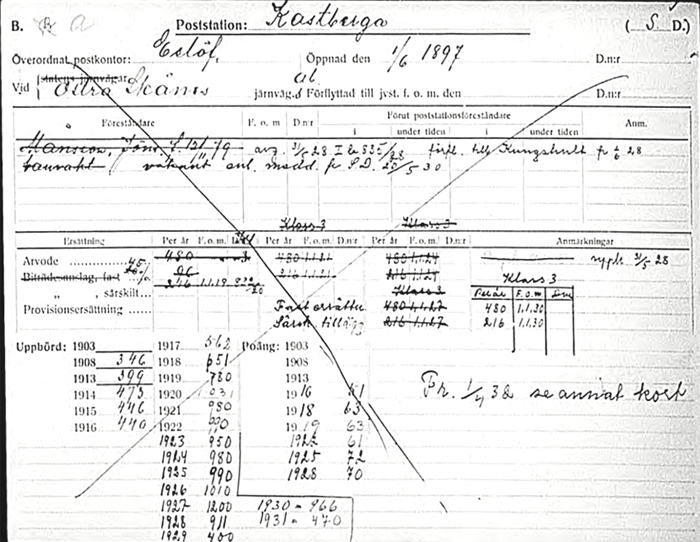 B. a Poststation: Kastberga (S D.)
Överordnat postkontor: Eslöf. Öppnad den 1/6 1897 D.n:r
Vid statens järnvägar Östra Skånes järnväg.s Förflyttad till jvst. f. o. m. den D.n:r
Föreståndare F. o. m D.n:r Förut poststationsföreståndare Anm.
i under tiden i under tiden
Hansson, Jöns, f. 121 79 avg. 31/5 28 förfl. till Kungshult fr 1/6 28
banvakt vakant enl. medd. fr S.D. 20/5 30
Klass 3 Klass 3
Ersättning Per år F. o. m. D.n:r Per år F. o. m. D.n:r Per år F. o. m. D.n:r Anmärkningar
Arvode 480 480 1.1.21 480 1.1.24 31/5 28
Biträdesanslag, fast 96 216 1.1.21 216 1.1.21 Klass 3
„ , särskilt 216 1.1.19 Klass 3 Per år F.o.m D.n:r
Provisionsersättning Fast ersättn. 480 1.1.27 480 1.1.30
Särsk. tillägg 216 1.1.27 216 1.1.30
Uppbörd: 1903 1917 562 Poäng: 1903
1908 346 1918 651 1908
1913 399 1919 780 1913
1914 473 1920 1031 1916 51
1915 446 1921 980 1918 63
1916 440 1922 990 1919 63
Fr. 1/4 32 se annat kort
1923 950 1922 61
1924 980 1925 72
1925 990 1928 70
1926 1010
1927 1200 1930 - 966
1928 911 1931 - 470
1929 400